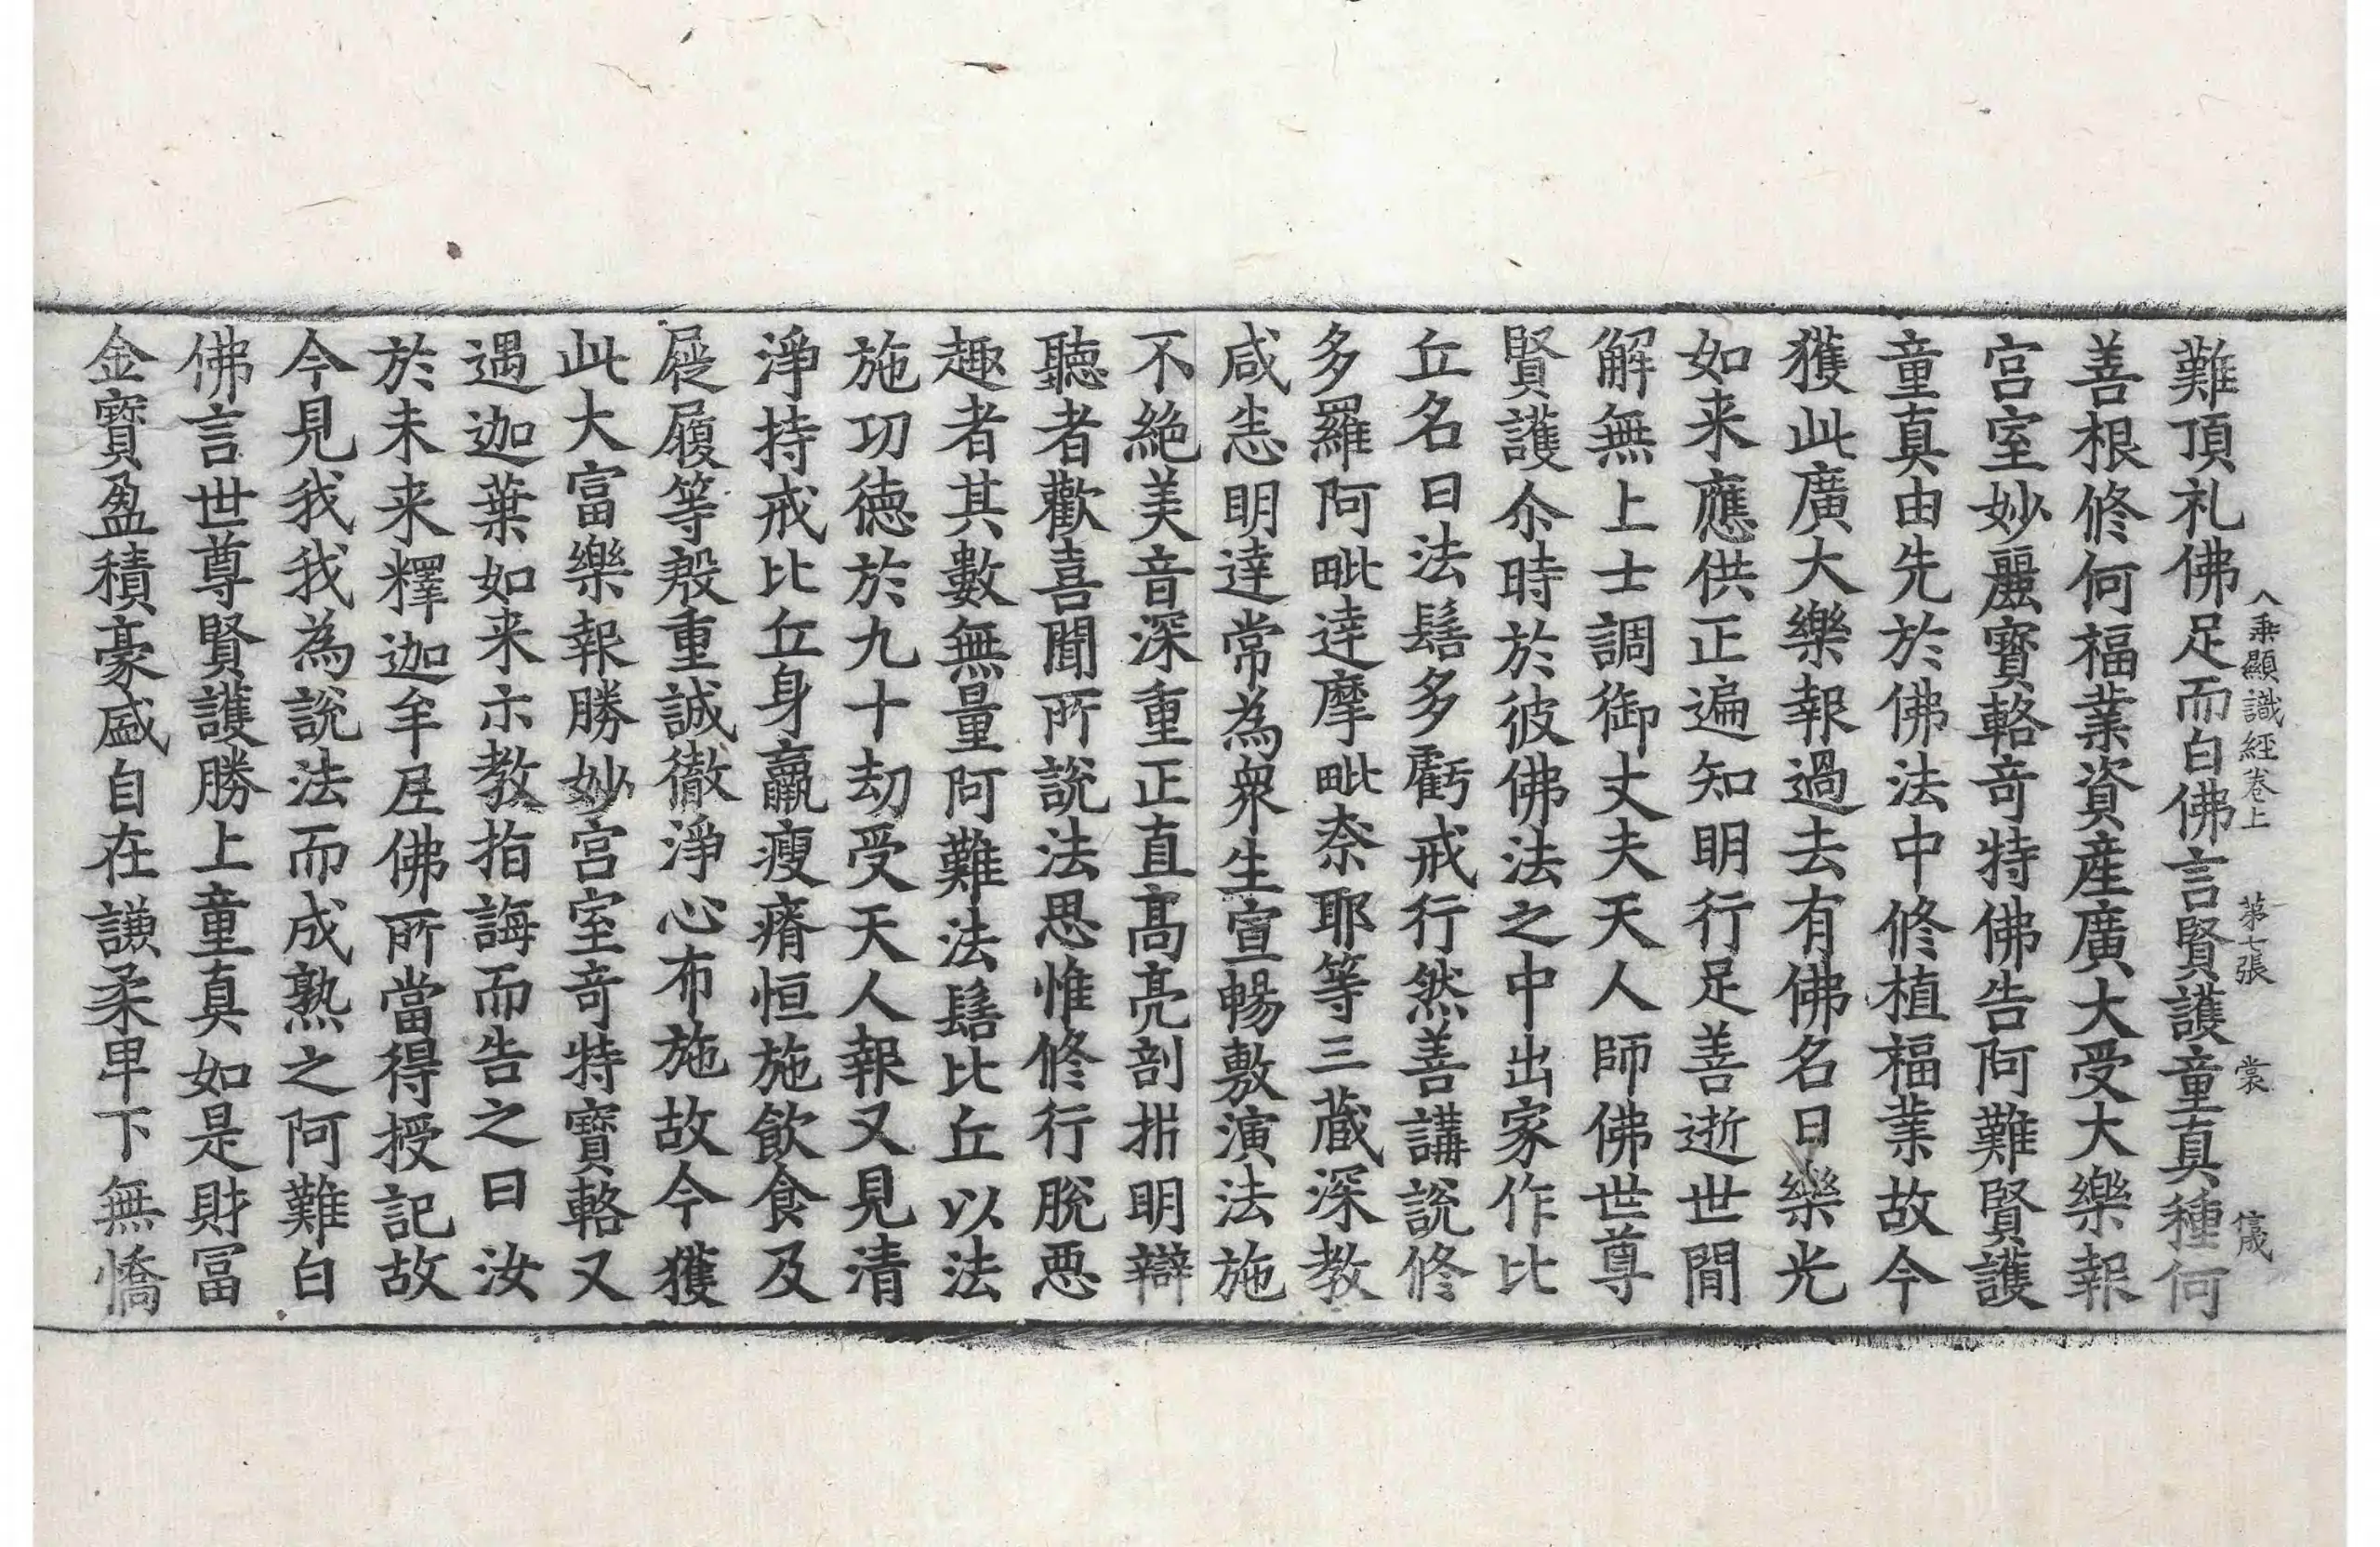 大乘顯識經卷上 第七張 裳 信晟
難頂礼佛足而白佛言賢護童真種何
善根修何福業資産廣大受大樂報
宫室妙麗寳輅竒特佛告阿難賢護
童真由先於佛法中修植福業故今
獲此廣大樂報過去有佛名曰樂光
如来應供正遍知明行足善逝世閒
解無上士調御丈夫天人師佛世尊
賢護尒時於彼佛法之中出家作比
丘名曰法髻多虧戒行然善講說修
多羅阿毗達摩毗柰耶等三藏深教
咸恙明達常為衆生宣暢敷演法施
不絶美音深重正直髙亮剖㭊明辯
聽者歡喜聞所說法思惟修行脫悪
趣者其數無量阿難法髻比丘以法
施功德於九十劫受天人報又見清
淨持戒比丘身羸瘦瘠恒施飲食及
屣履等殷重誠徹淨心布施故今獲
此大富樂報勝妙宫室竒特寳輅又
遇迦葉如来示教指誨而告之曰汝
於未来釋迦牟尼佛所當得授記故
今見我我為說法而成熟之阿難白
佛言世尊賢護勝上童真如是財冨
金寳盈積豪盛自在謙柔卑下無憍